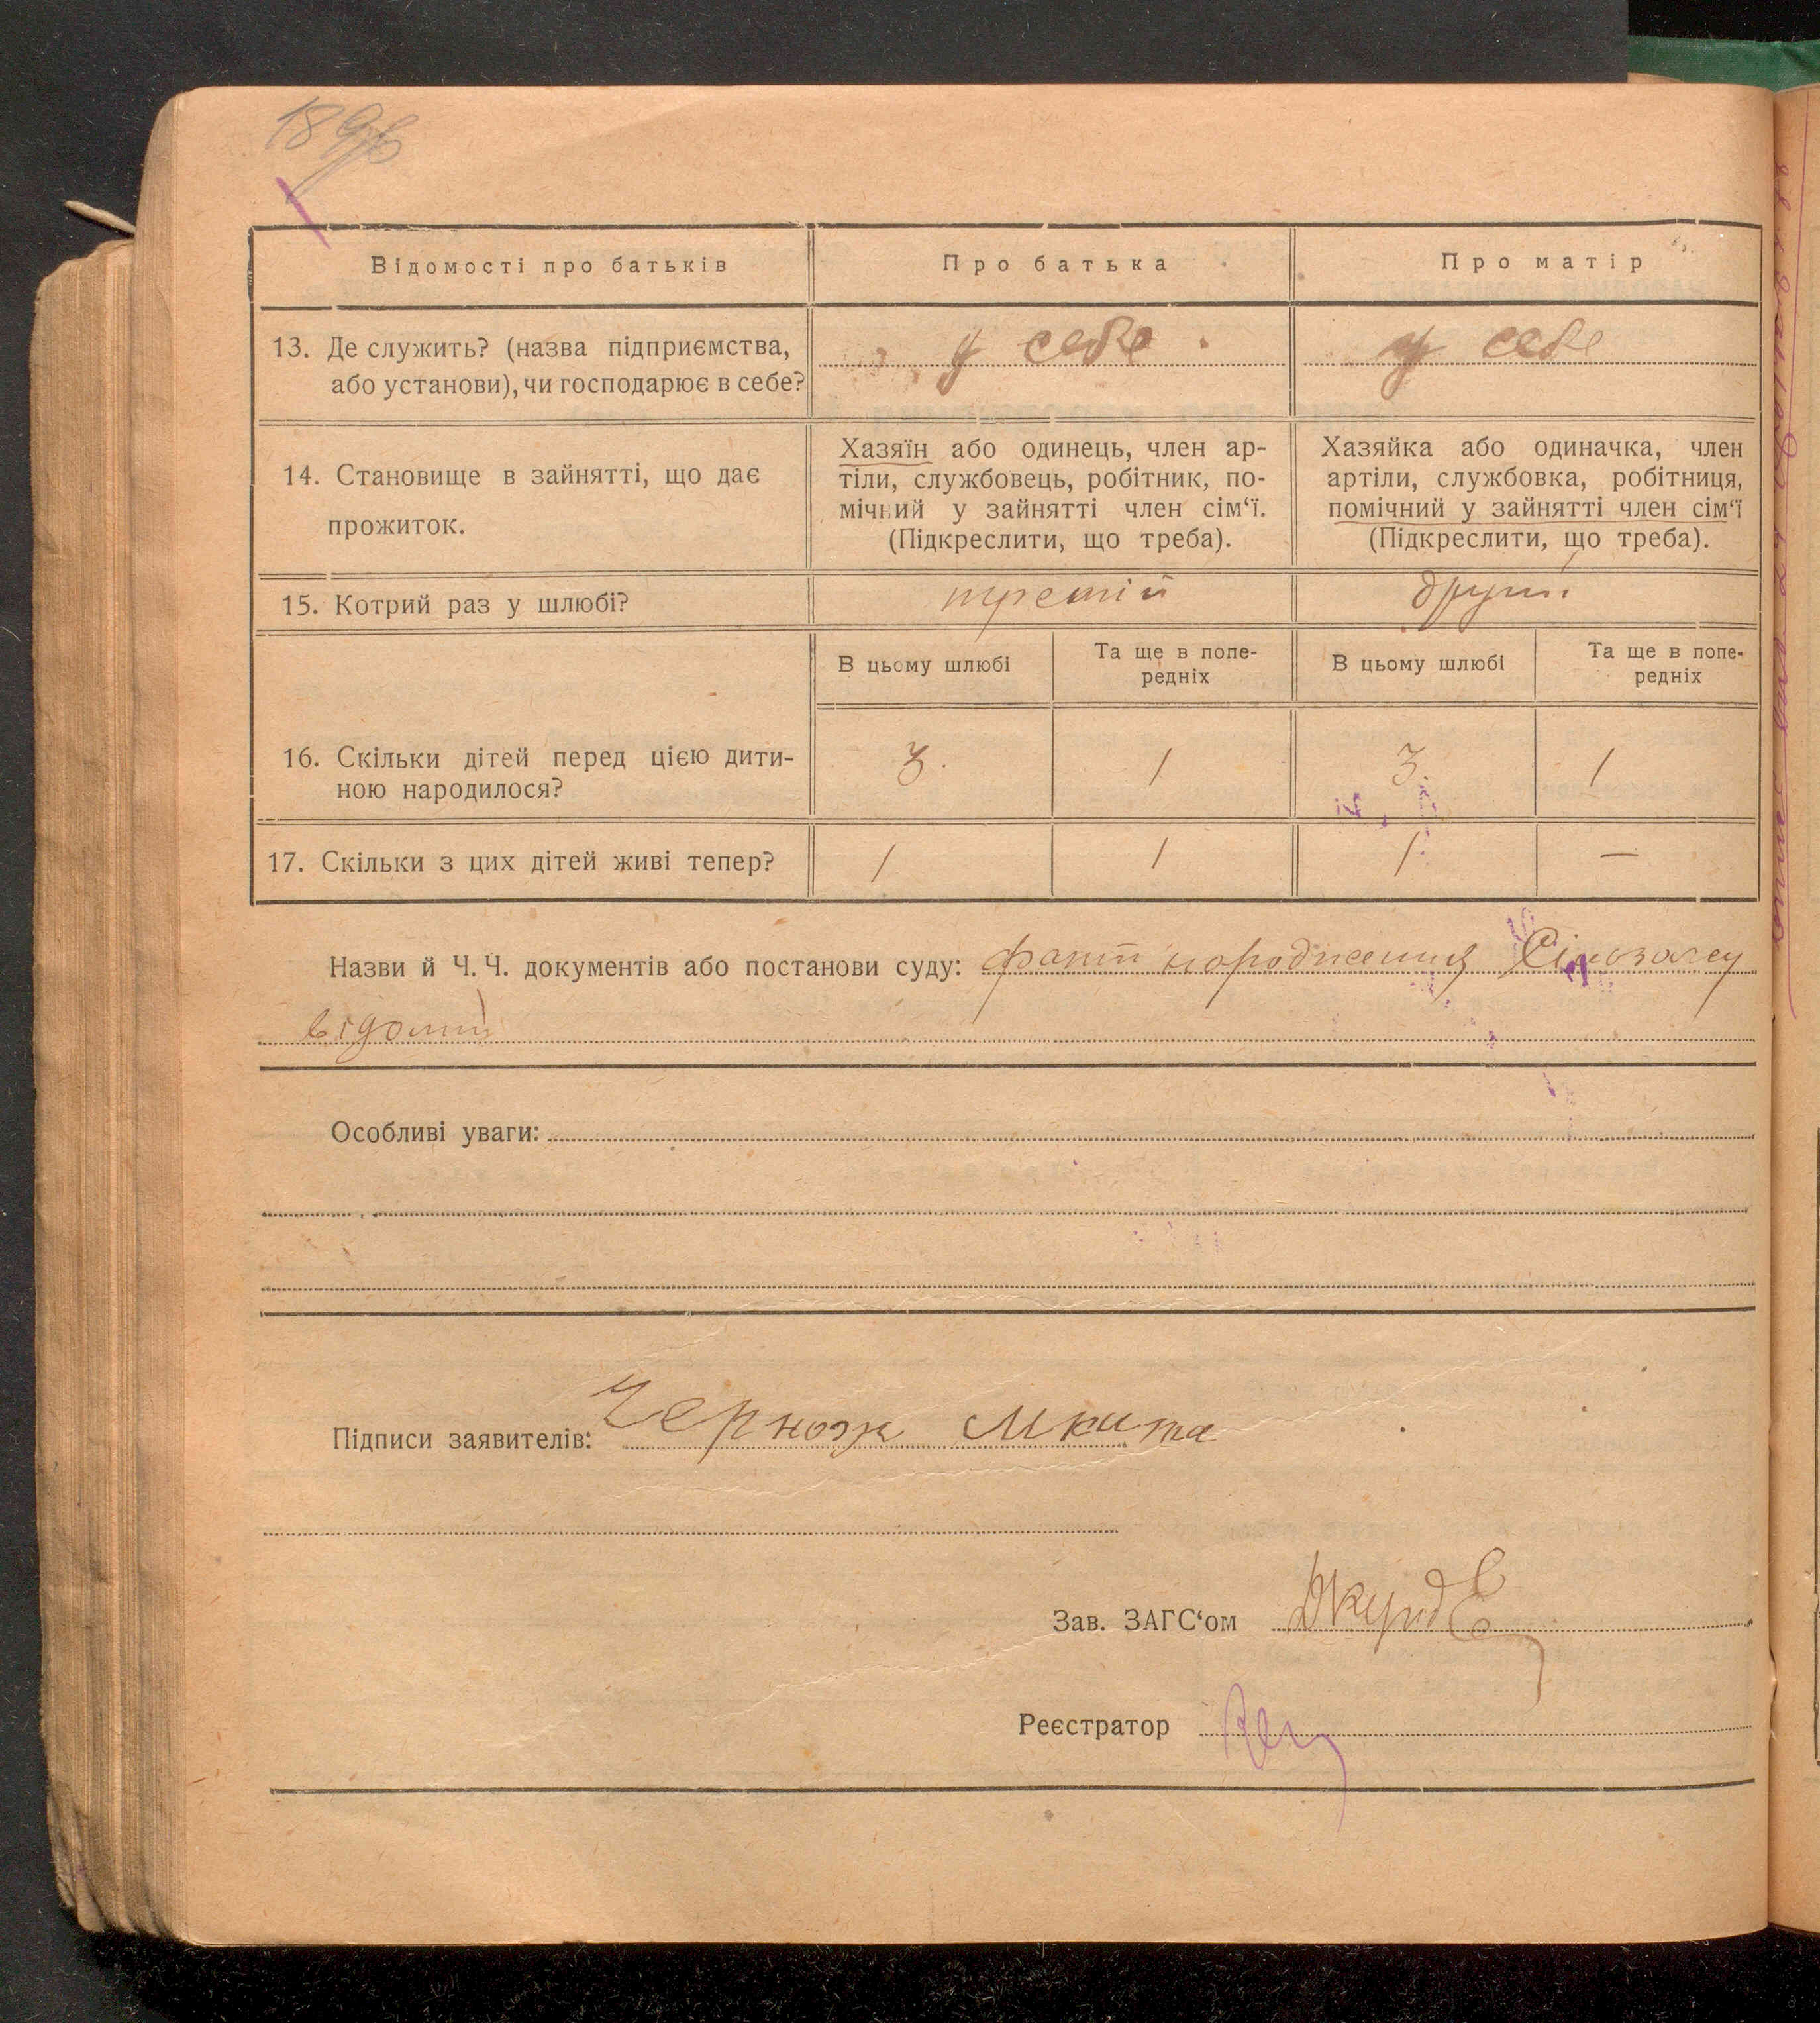 189
Відомості про батьків
Про батька
Про матір
13. Де служить? (назва підприємства,
або установи), чи господарює в себе?
у себе
у себе
14. Становище в зайнятті, що дає
прожиток.
Хазяїн або одинець, член ар-
тіли, службовець, робітник, по-
мічний у зайнятті член сім‘ї.
(Підкреслити, що треба).
Хазяйка або одиначка, член
артіли, службовка, робітниця,
помічний у зайнятті член сім‘ї
(Підкреслити, що треба).
15. Котрий раз у шлюбі?
третій
другий
В цьому шлюбі
Та ще в попе-
редніх
В цьому шлюбі
Та ще в попе-
редніх
16. Скільки дітей перед цією дити-
ною народилося?
3.
1
3.
1
17. Скільки з цих дітей живі тепер?
1
1
1
—
Назви й Ч. Ч. документів або постанови суду: факт народження Сільзагсу
відомий
Особливі уваги:
Підписи заявителів: Чернож Мкита
Зав. ЗАГС‘ом
Реєстратор